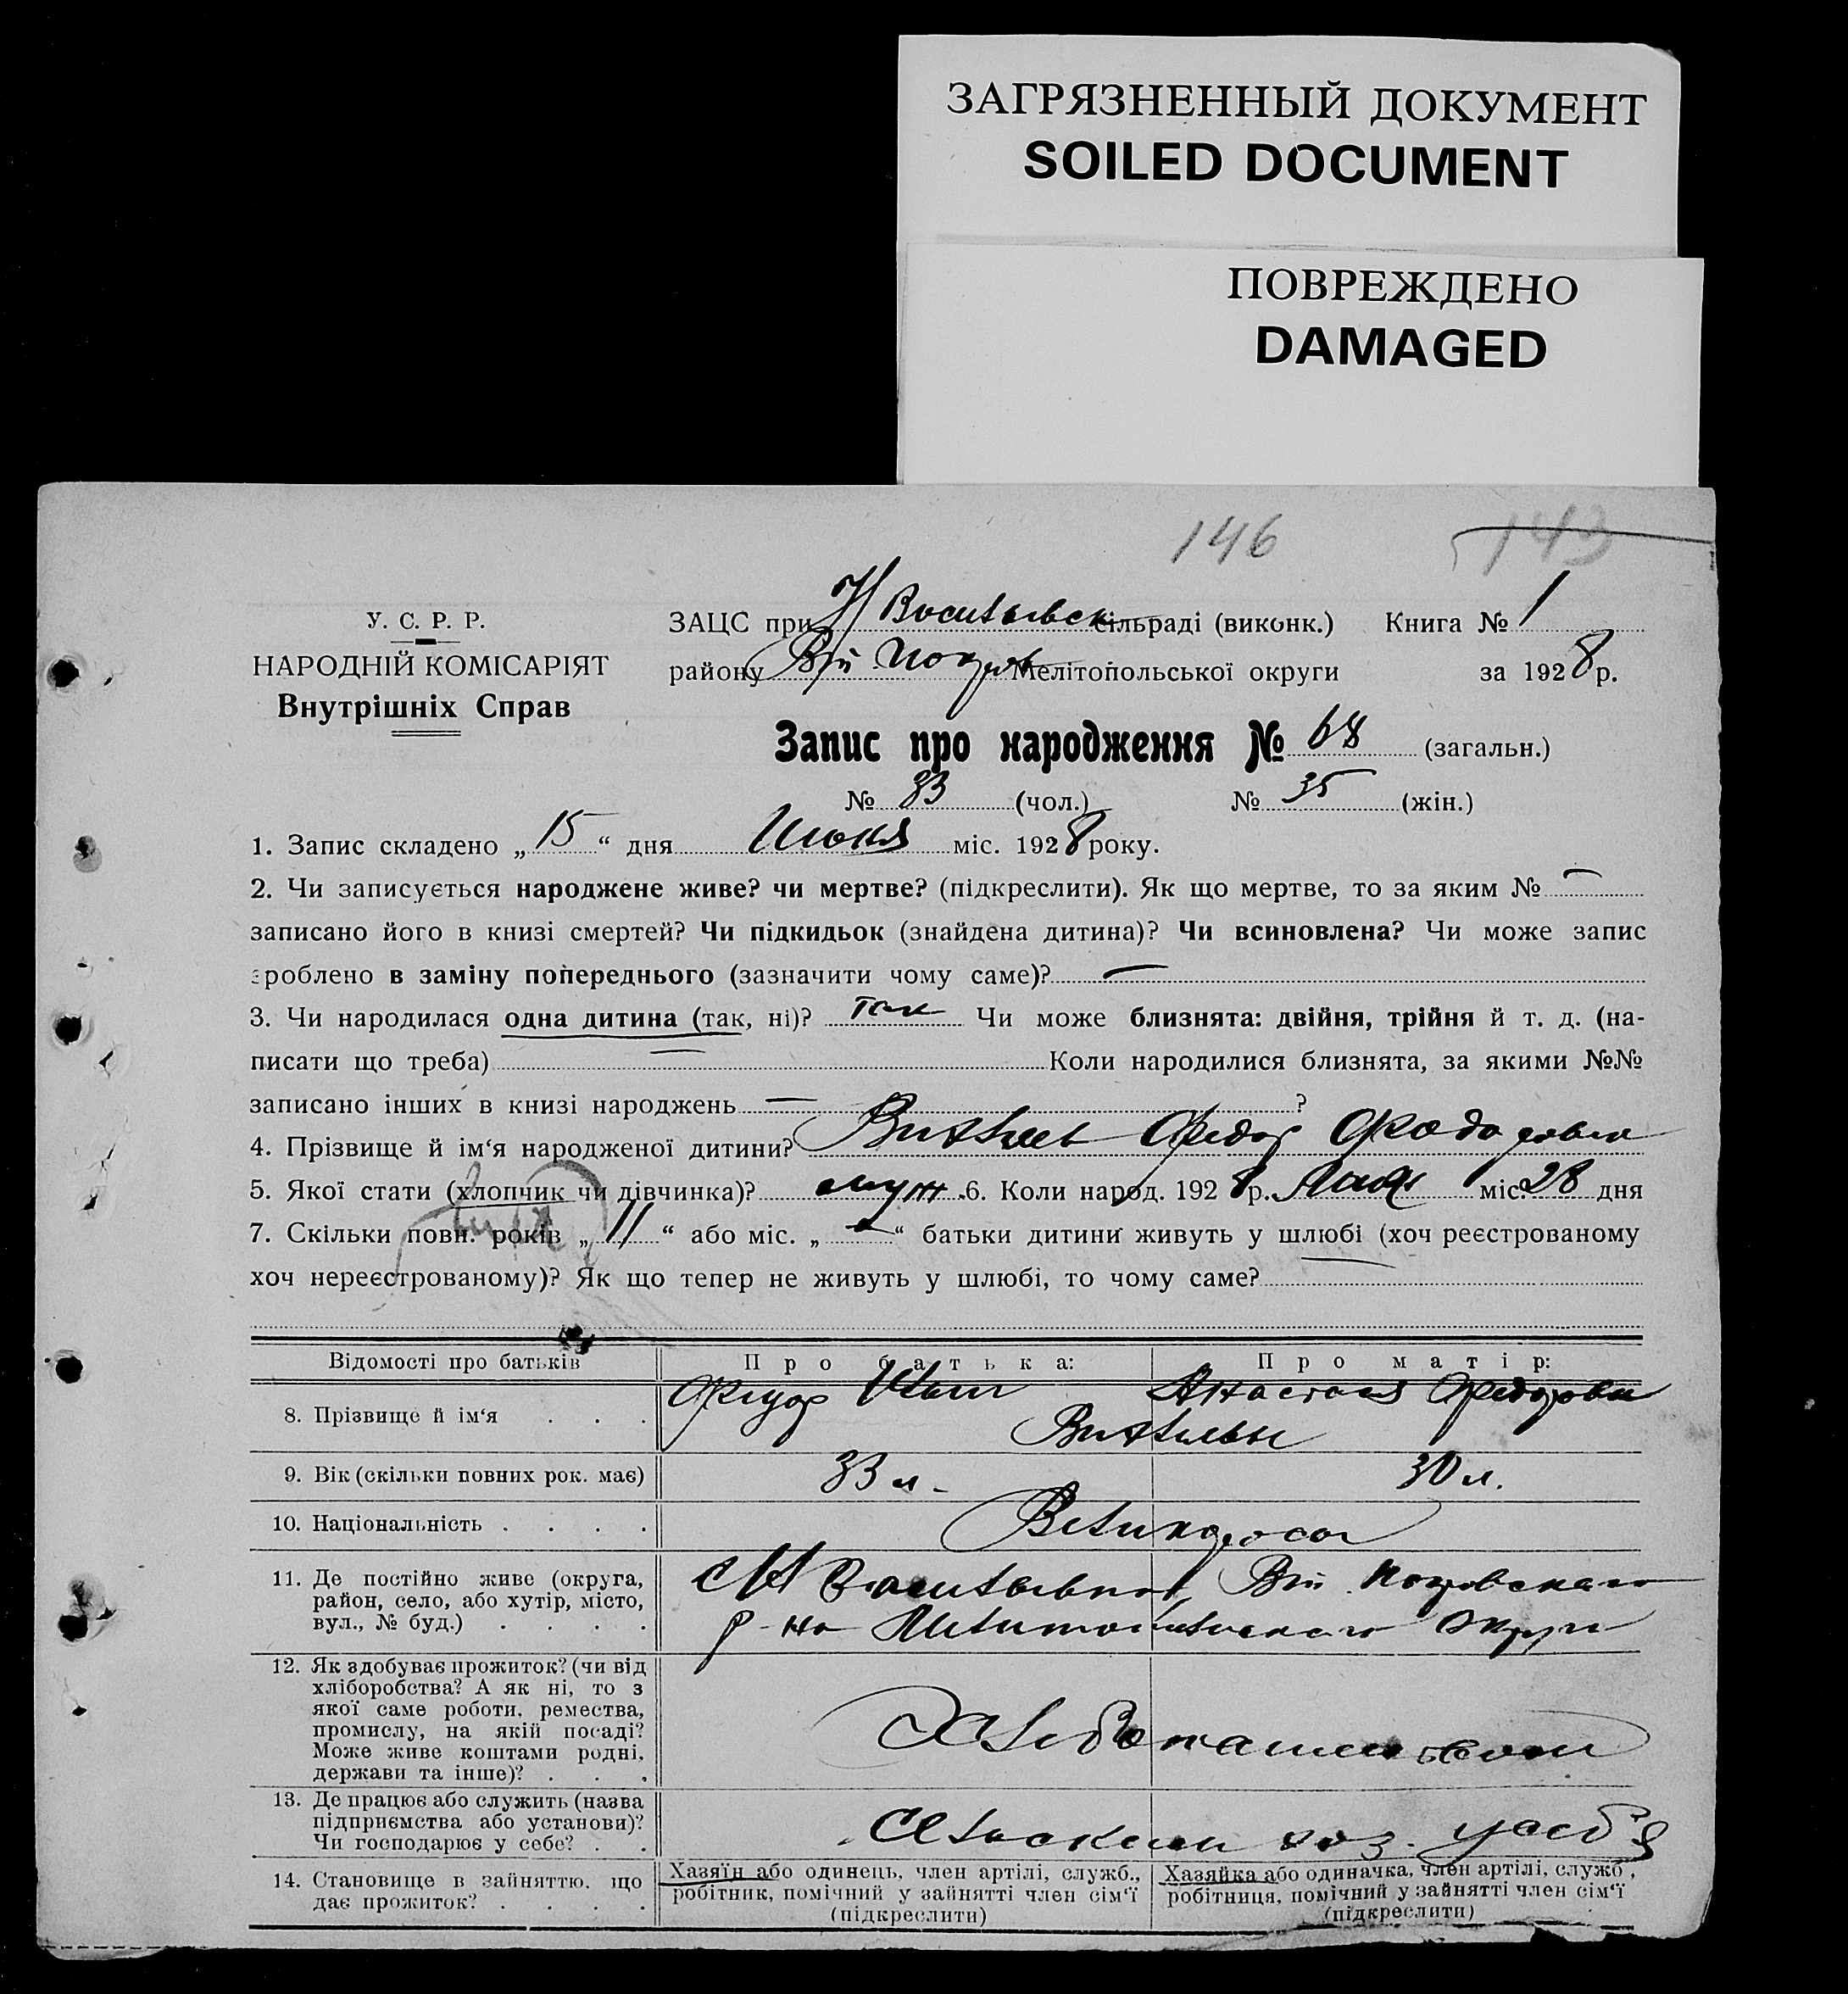 ЗАГРЯЗНЕННЫЙ ДОКУМЕНТ
SOILED DOCUMENT
ПОВРЕЖДЕНО
DAMAGED
146 143
У. С. Р. Р.
НАРОДНІЙ КОМІСАРІЯТ
Внутрішніх Справ
ЗАЦС при Н Васильевск сільраді (виконк.) Книга № 1
району Вт. Покров Мелітопольської округи за 1928 р.
Запис про народження № 68 (загальн.)
№ 33 (чол.) № 35 (жін.)
1. Запис складено „15“ дня Июня міс. 1928 року.
2. Чи записується народжене живе? чи мертве? (підкреслити). Як що мертве, то за яким № —
записано його в книзі смертей? Чи підкидьок (знайдена дитина)? Чи всиновлена? Чи може запис
зроблено в заміну попереднього (зазначити чому саме)? —
3. Чи народилася одна дитина (так, ні)? так Чи може близнята: двійня, трійня й т. д. (на-
писати що треба) — Коли народилися близнята, за якими №№
записано інших в книзі народжень — ?
4. Прізвище й ім‘я народженої дитини? Федор
5. Якої стати (хлопчик чи дівчинка)? муж 6. Коли народ. 1928 р. Мая міс. 28 дня
7. Скільки повн. років „11“ або міс. „—“ батьки дитини живуть у шлюбі (хоч реєстрованому
хоч нереєстрованому)? Як що тепер не живуть у шлюбі, то чому саме?
Відомості про батьків Про батька: Про матір:
8. Прізвище й ім‘я . . . Анастасия Федоровна
9. Вік (скільки повних рок. має) 33 л. 30 л.
10. Національність . . . . Великоросы
11. Де постійно живе (округа, район, село, або хутір, місто, вул., № буд.) . . . . с Н Васильевка, Вт. Покровскаго
р-на Мелитопольскаго Округи
12. Як здобуває прожиток? (чи від
хліборобства? А як ні, то з
якої саме роботи, ремества,
промислу, на якій посаді?
Може живе коштами родні,
держави та інше)? . . . Хлебопашеством
13. Де працює або служить (назва
підприємства або установи)?
Чи господарює у себе? . . Сельским хоз. у себя
14. Становище в зайняттю, що
дає прожиток? . . . .
Хазяїн або одинець, член артілі, служб.,
робітник, помічний у зайнятті член сім‘ї
(підкреслити)
Хазяйка або одиначка, член артілі, служб.,
робітниця, помічний у зайнятті член сім‘ї
(підкреслити)